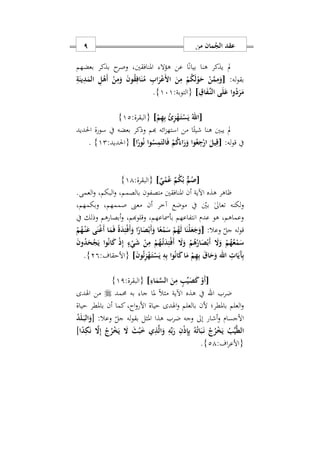 عقد الجُمان من ٩
لم يذكر هنا بيانًا عن هؤلاء المنافقين، وصرح بذكر بعضهم
بقوله: [وَمِمَّنْ حَوْلَكُمْ مِنَ الأَعْرَابِ مُنَافِقُونَ وَمِنْ أَهْلِ المَدِينَةِ
مَرَدُوا عَلَى النِّفَاقِ] {التوبة:١٠١}.
[اللهُ يَسْتَهْزِئُ بِهِمْ] {البقرة:١٥}
لم يبين هنا شيئًا من استهزائه بهم وذكر بعضه في سورة الحديد
في قوله: [قِيلَ ارْجِعُوا وَرَاءَكُمْ فَالْتَمِسُوا نُورًا] {الحديد:١٣}.
[صُمٌّ بُكْمٌ عُمْيٌ] {البقرة:١٨}
ظاهر هذه الآية أن المنافقين متصفون بالصمم، والبكم، والعمى.
ولكنه تعالى بيّن في موضع آخر أن معنى صممهم، وبكمهم،
وعماهم، هو عدم انتفاعهم بأسماعهم، وقلوبهم، وأبصارهم وذلك في
قوله جلّ وعلا: [وَجَعَلْنَا لَهُمْ سَمْعًا وَأَبْصَارًا وَأَفْئِدَةً فَمَا أَغْنَى عَنْهُمْ
سَمْعُهُمْ وَلَا أَبْصَارُهُمْ وَلَا أَفْئِدَتُهُمْ مِنْ شَيْءٍ إِذْ كَانُوا يَجْحَدُونَ
بِآَيَاتِ اللهِ وَحَاقَ بِهِمْ مَا كَانُوا بِهِ يَسْتَهْزِئُونَ] {الأحقاف:٢٦}.
[أَوْ كَصَيِّبٍ مِنَ السَّمَاءِ] {البقرة:١٩}
ضرب الله في هذه الآية مثلًا لما جاء به محمد ﷺ من الهدى
والعلم بالمطر؛ لأن بالعلم والهدى حياة الأرواح، كما أن بالمطر حياة
الأجسام وأشار إلى وجه ضرب هذا المثل بقوله جلّ وعلا: [وَالبَلَدُ
الطَّيِّبُ يَخْرُجُ نَبَاتُهُ بِإِذْنِ رَبِّهِ وَالَّذِي خَبُثَ لَا يَخْرُجُ إِلَّا نَكِدًا]
{الأعراف:٥٨}.